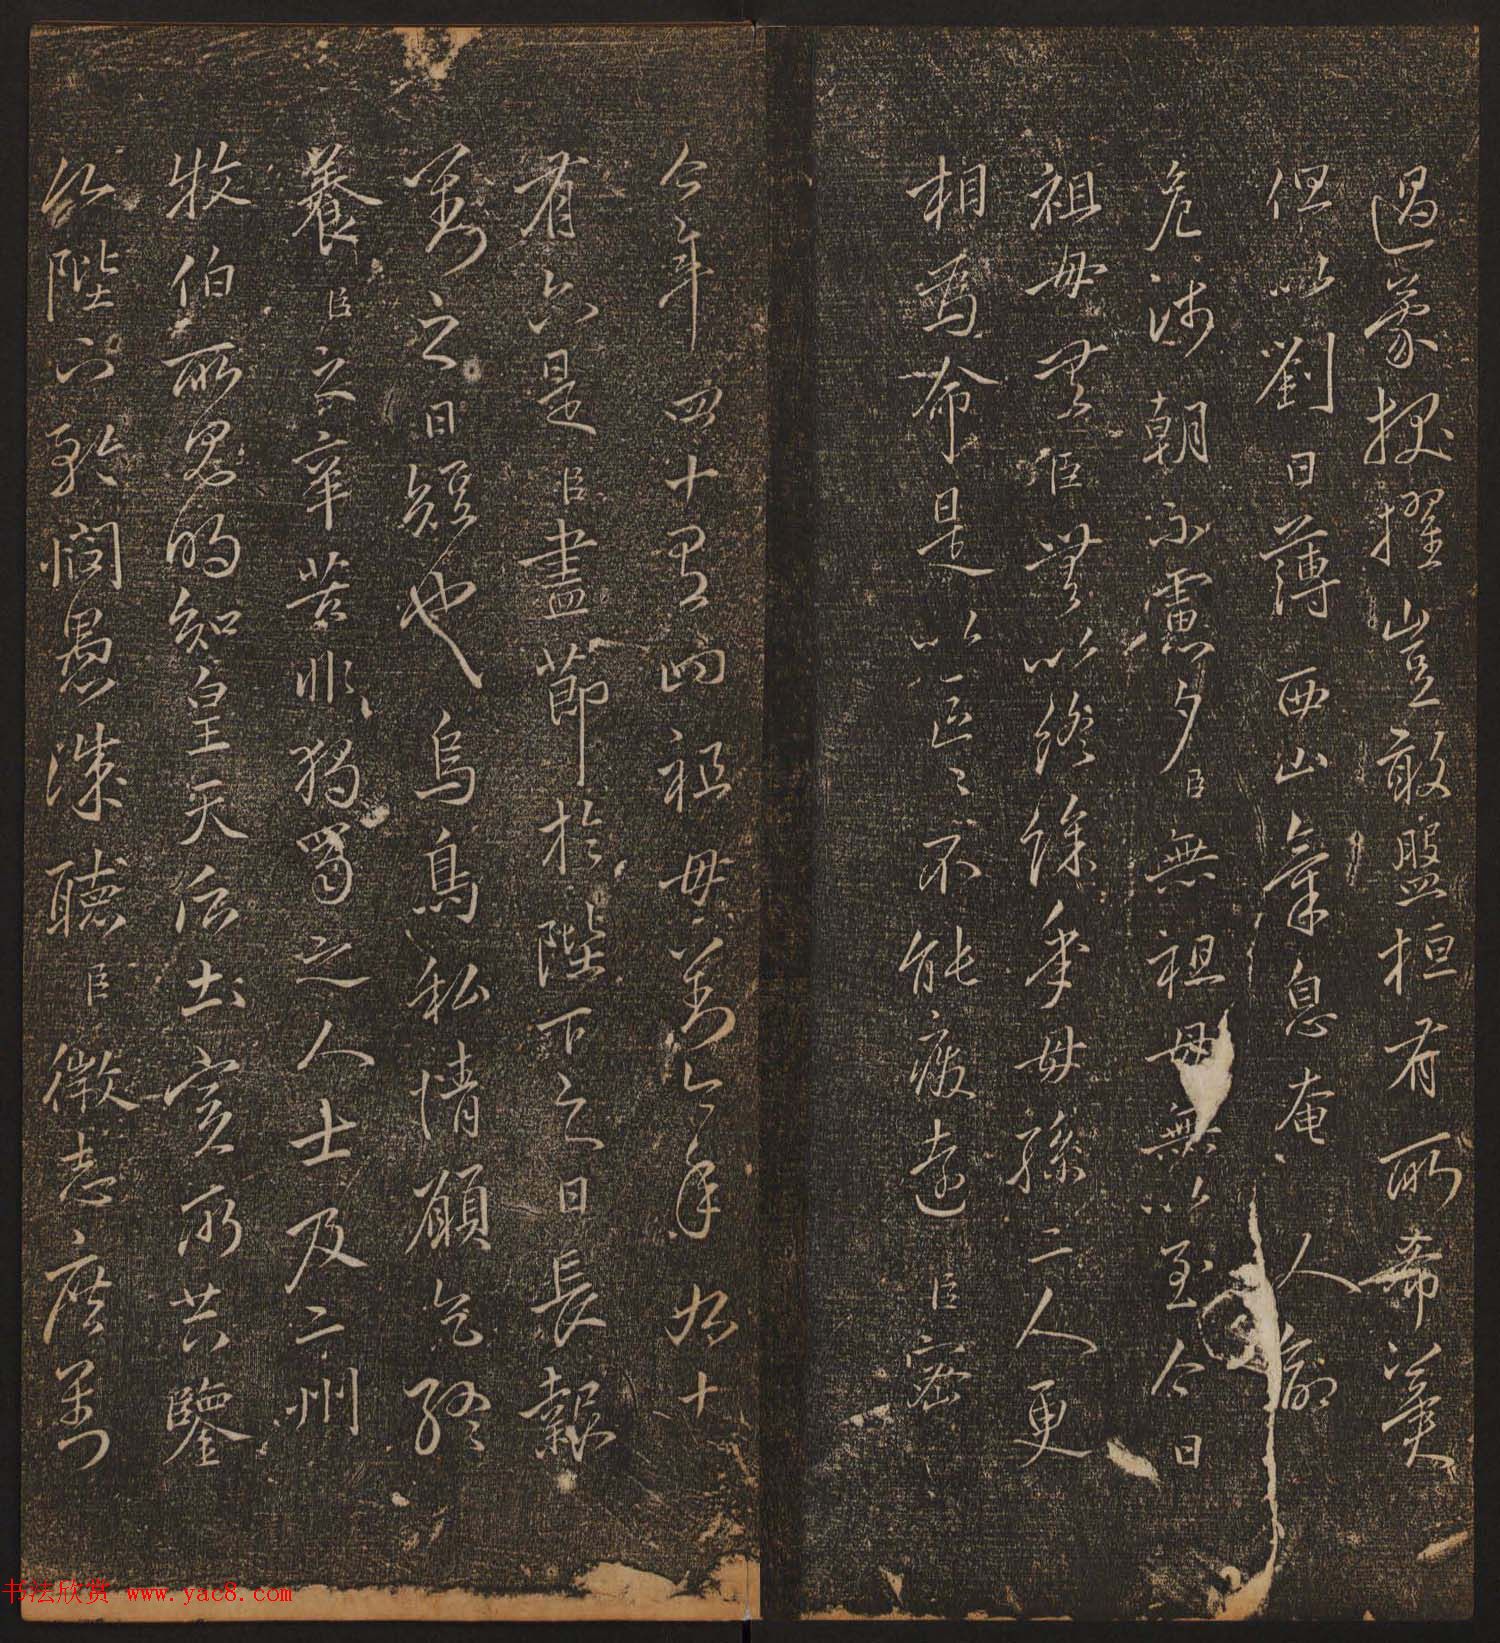 過蒙拔擢豈敢盤桓有所希冀
但以劉日薄西山氣息奄〻人命
危淺朝不慮夕臣無祖母無以至今日
祖母無臣無以終餘年母孫二人更
相為命是以區〻不能廢遠臣密
今年四十有四祖母劉今年九十
有六是臣盡節於陛下之日長報
劉之日短也烏鳥私情願乞終
養臣之辛苦非獨蜀之人士及二州
牧伯所見明知皇天后土實所共鑒
陛下矜愍愚誠聽臣微志庶劉
书法欣赏 www.yac8.com